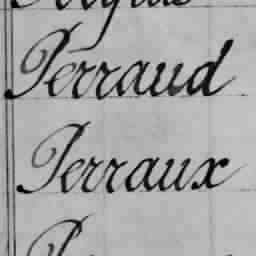 Perraud
Perraux